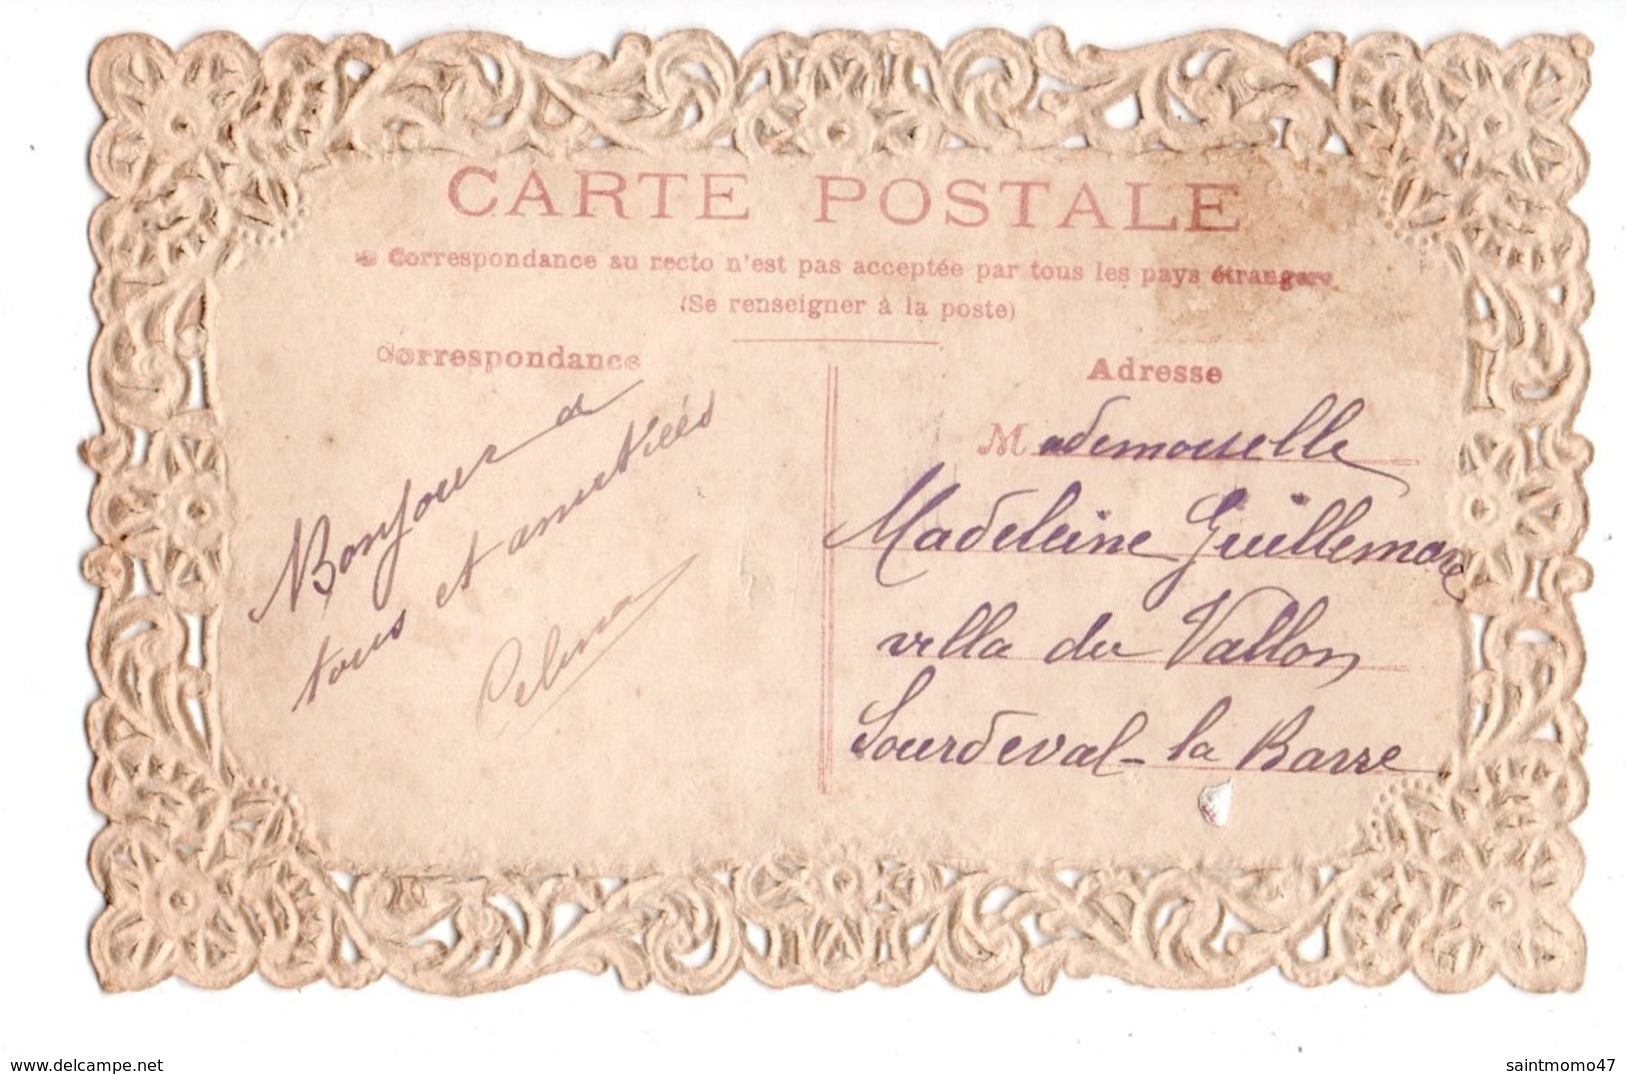 CARTE POSTALE
Correspondance au recto n'est pas acceptée par tous les pays étrangers
(Se renseigner à la poste)
Correspondance
Bonjour a
tous et amitiées
Adresse
Mademoiselle
Madeleine Guillemard
villa du Vallon
Sourdeval-la Barre
www.delcampe.net
saintmomo47